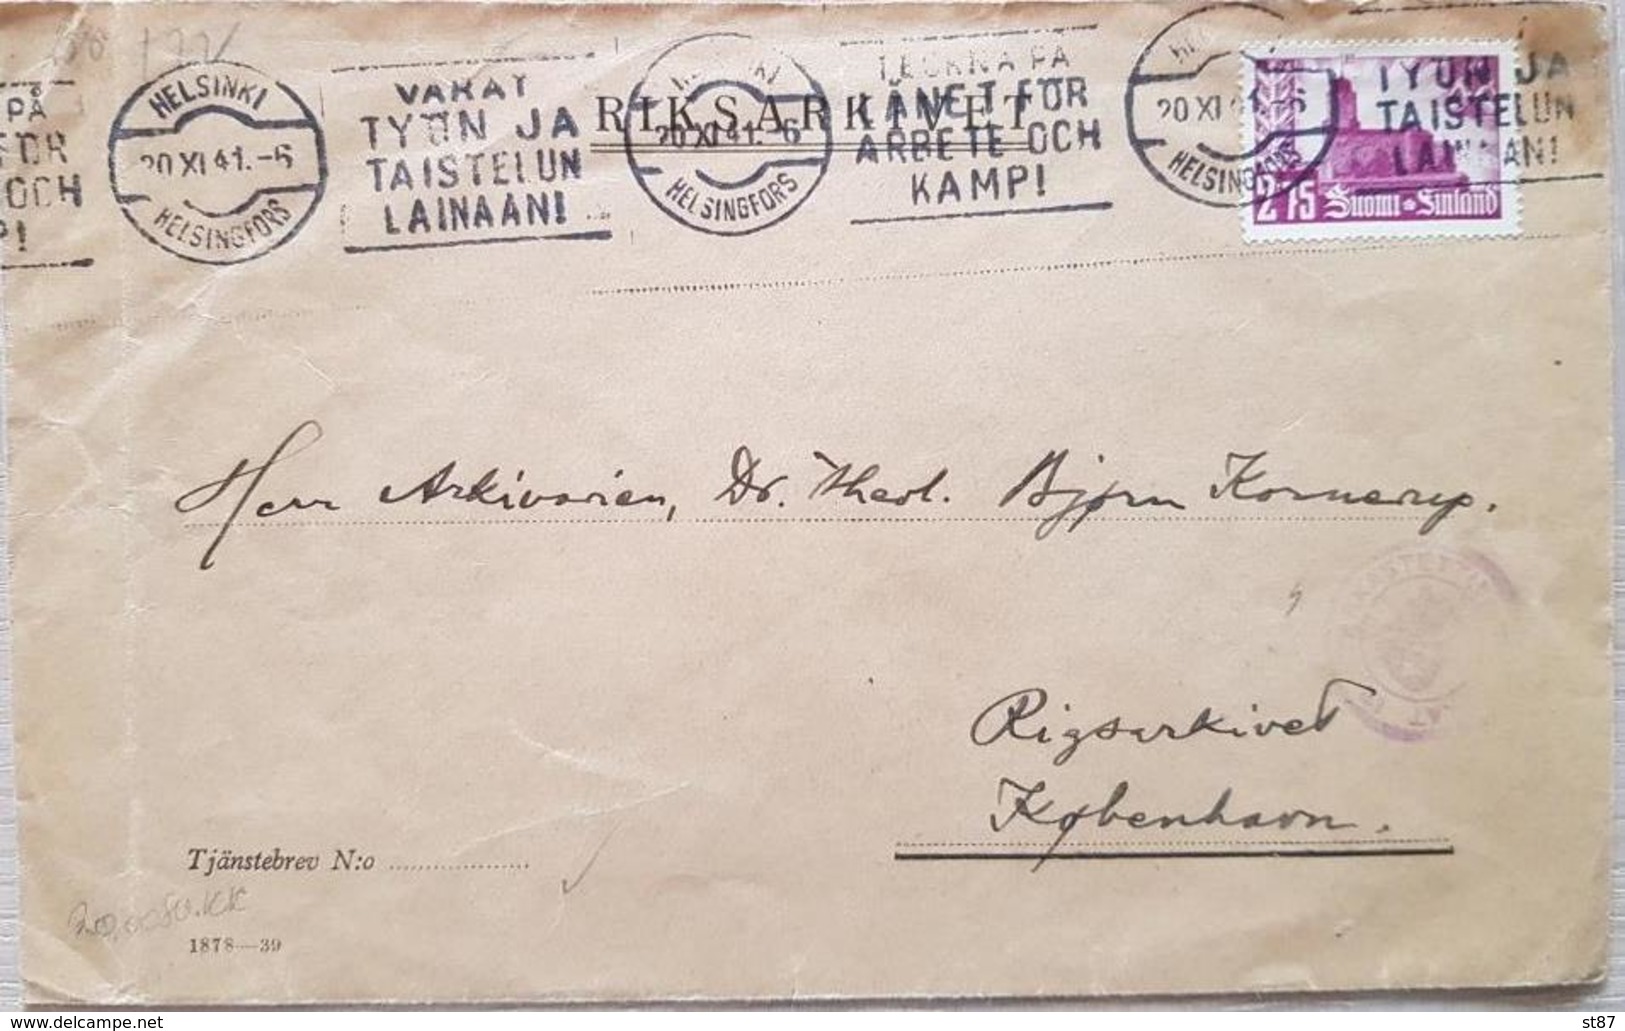 PÅ
FÖR
OCH
P!
HELSINKI
20 XI 41.-6
HELSINGFORS
VARAT
TYÖN JA
TAISTELUN
LAINAAN!
RIKSARKIVET
20 XI 41.-6
HELSINGFORS
TECKNA PÅ
LÅNET FÖR
ARBETE OCH
KAMP!
20 XI 41-6
HELSINGFORS
TYÖN JA
TAISTELUN
LAINAAN!
2 75 Suomi Finland
Herr Arkivarien, Dr. Theol. Bjørn Kornerup.
Rigsarkivet
København.
Tjänstebrev N:o
1878—39
delcampe.net
st87